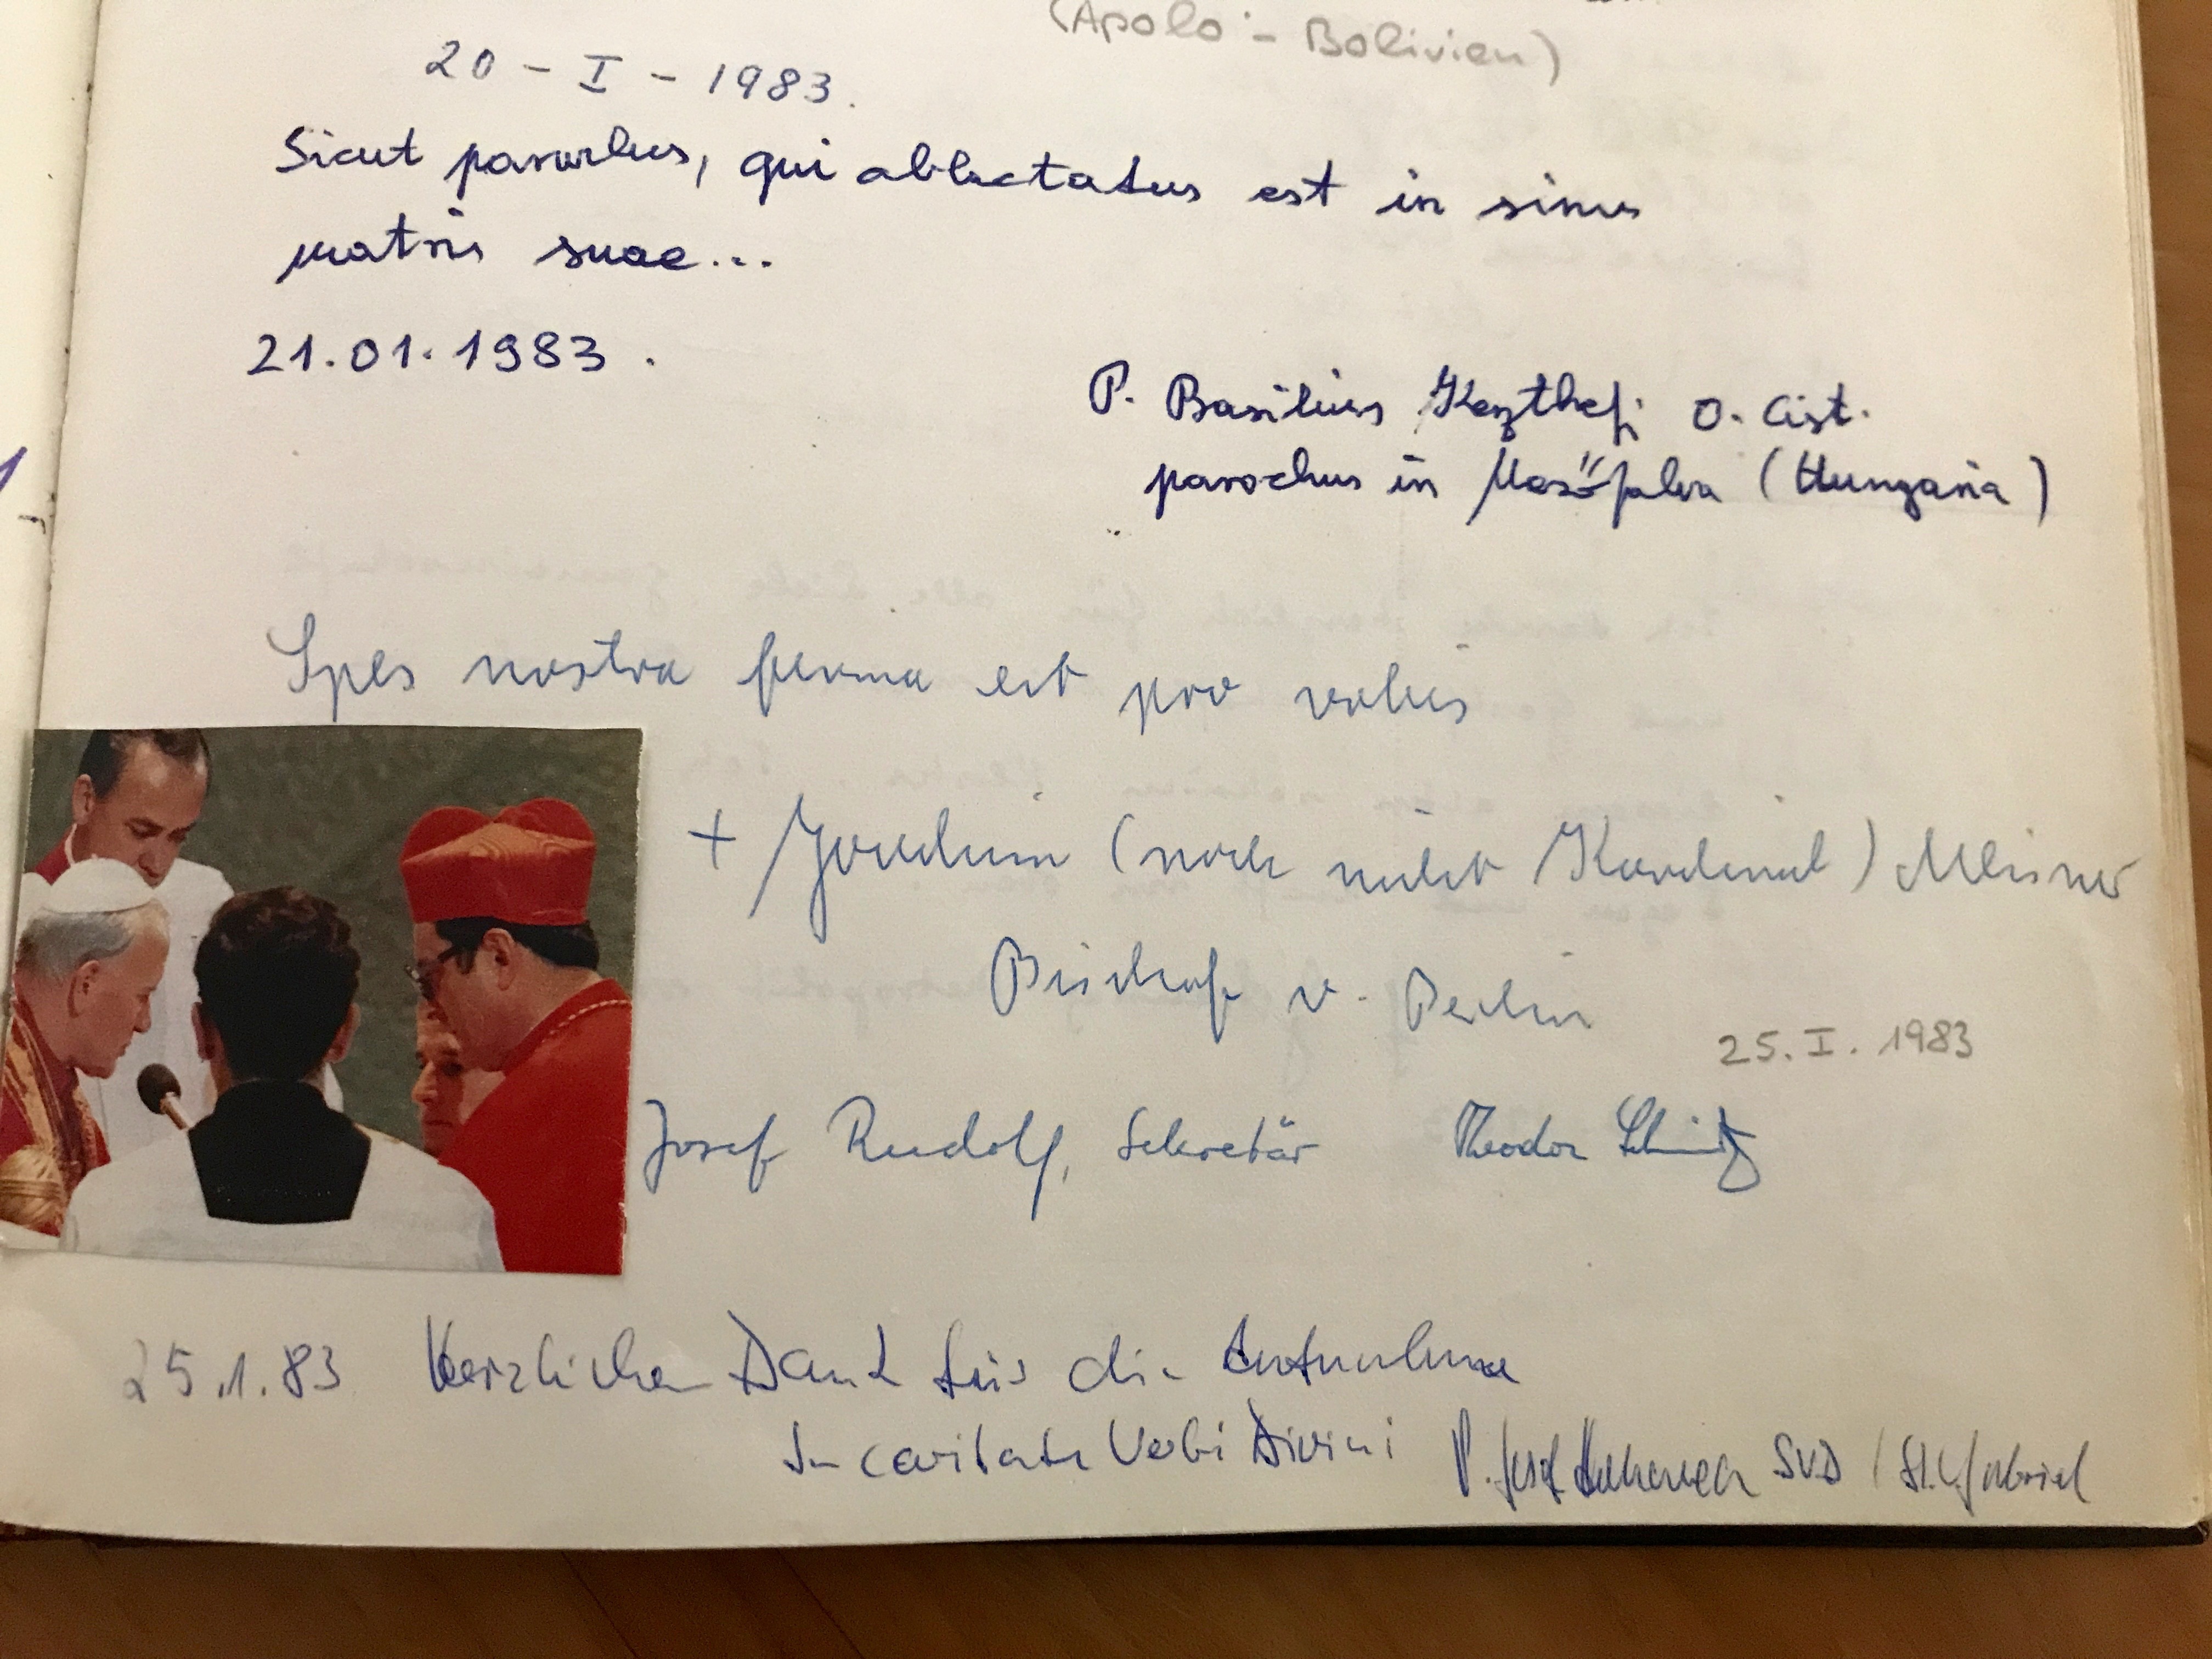 (Apolo - Bolivien)
20 - I - 1983.
Sicut parvulus, qui ablactatus est in sinu
matris suae...
21.01.1983.
P. Basilius Keszthelyi O. Cist.
parochus in Mezőfalva (Hungaria)
Spes nostra firma est pro vobis
+ Joachim (noch nicht Kardinal) Meisner
Bischof v. Berlin
25. I. 1983
Josef Rudolf, Sekretär Theodor Schmitz
25.1.83 Herzlichen Dank für die Aufnahme
In caritate Verbi Divini P. Josef SVD / St. Gabriel